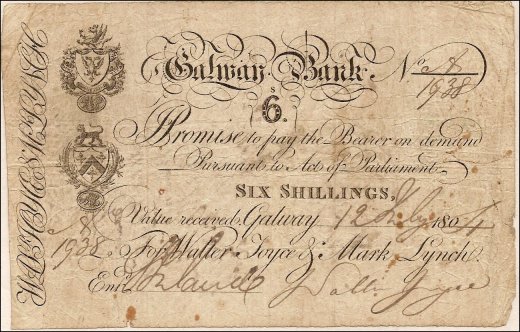 Galway Bank.
No. A
1938
6.s
I Promise to pay the Bearer on demand
Pursuant to Acts of Parliament
SIX SHILLINGS,
Value received, Galway 12 July 1804
1938
For Walter Joyce & Mark Lynch.
Entd.
Walter Joyce